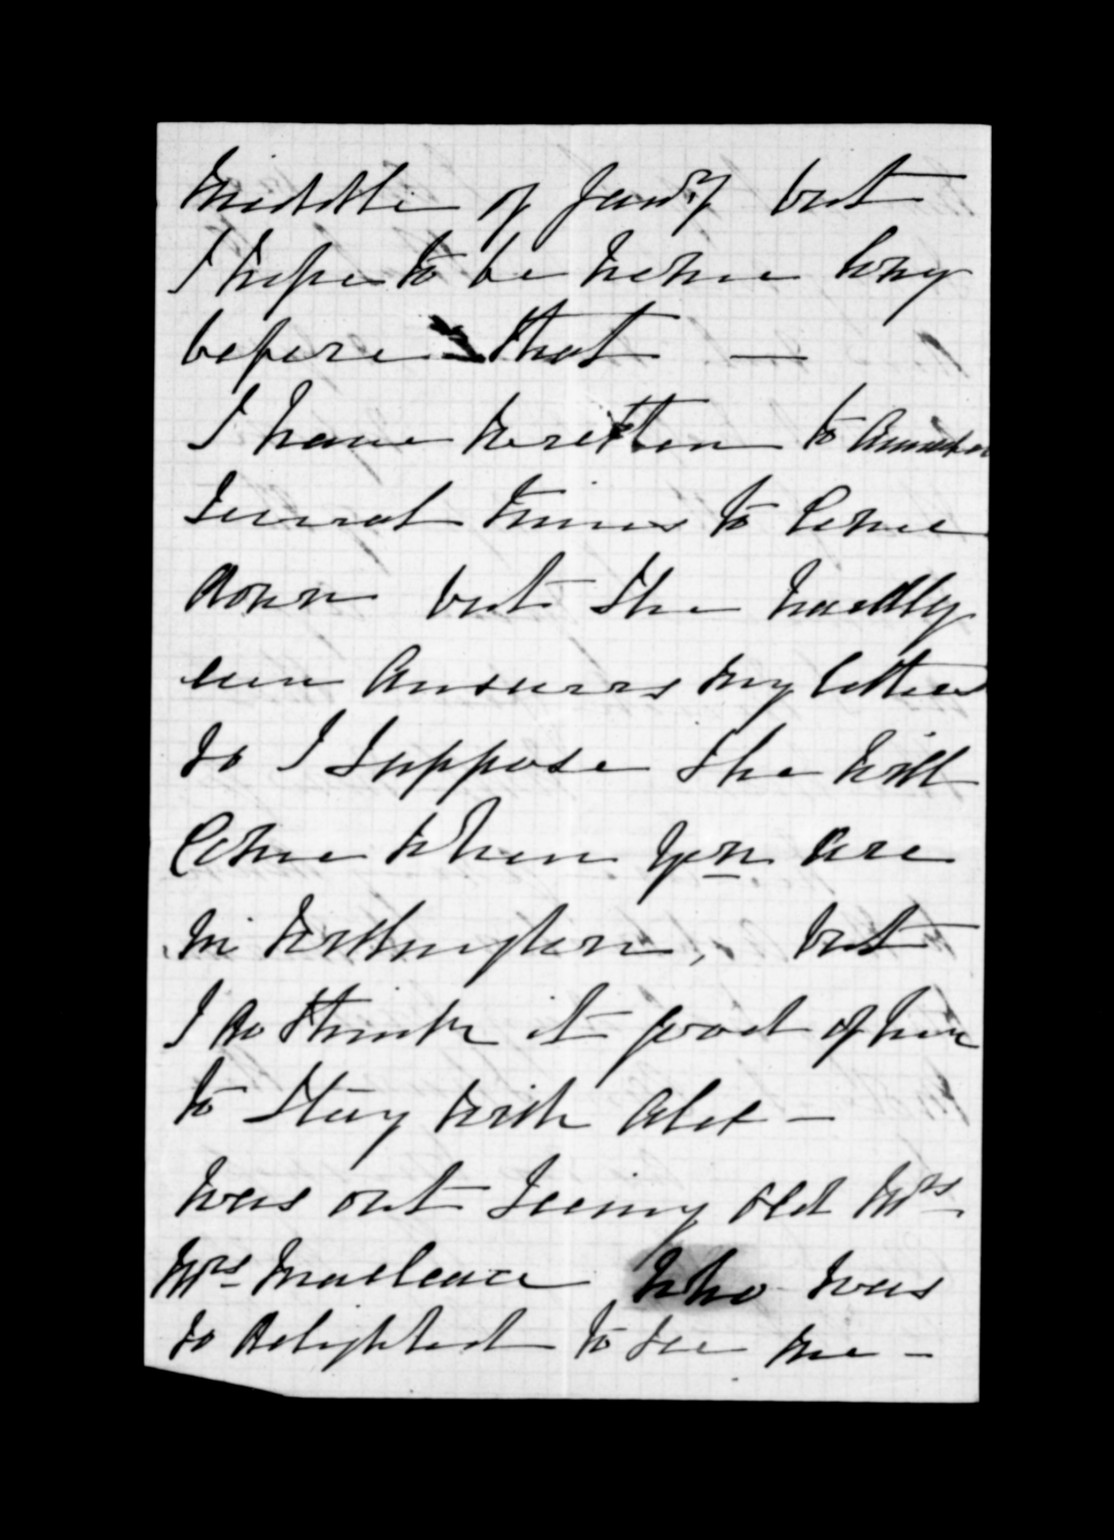 middle of Jan<sup>ry</sup> but
I hope to be home long
before that —
I have written to Annabella
several times to come
down but she hardly
ever answers my letters
so I suppose she will
come when you are
in Wellington, but
I do think it good of her
to stay with Alex —
was out seeing old Mrs
Mrs who was
so delighted to see me —